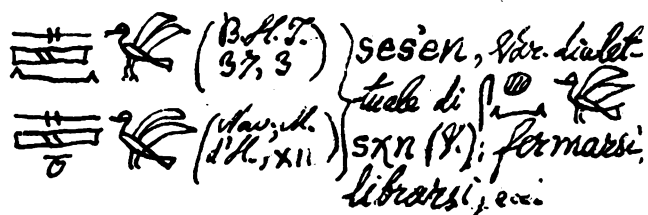 (B.H.T.
37, 3)
(Nav., M.
d'H., XII)
ses'en, Var. dialet-
tuale di
sχn (V.); fermarsi,
librarsi, ecc.